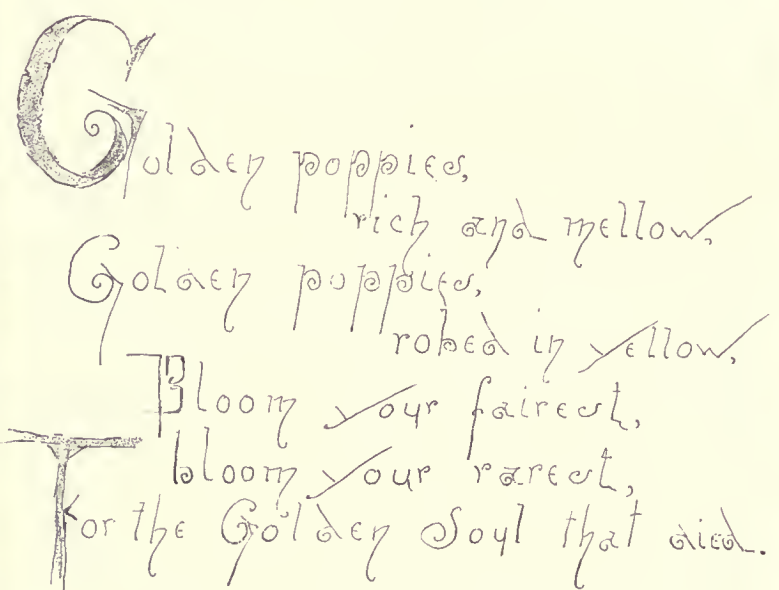 Golden poppies,
rich and mellow,
Golden poppies,
robed in yellow,
Bloom your fairest,
bloom your rarest,
For the Golden Soul that died.